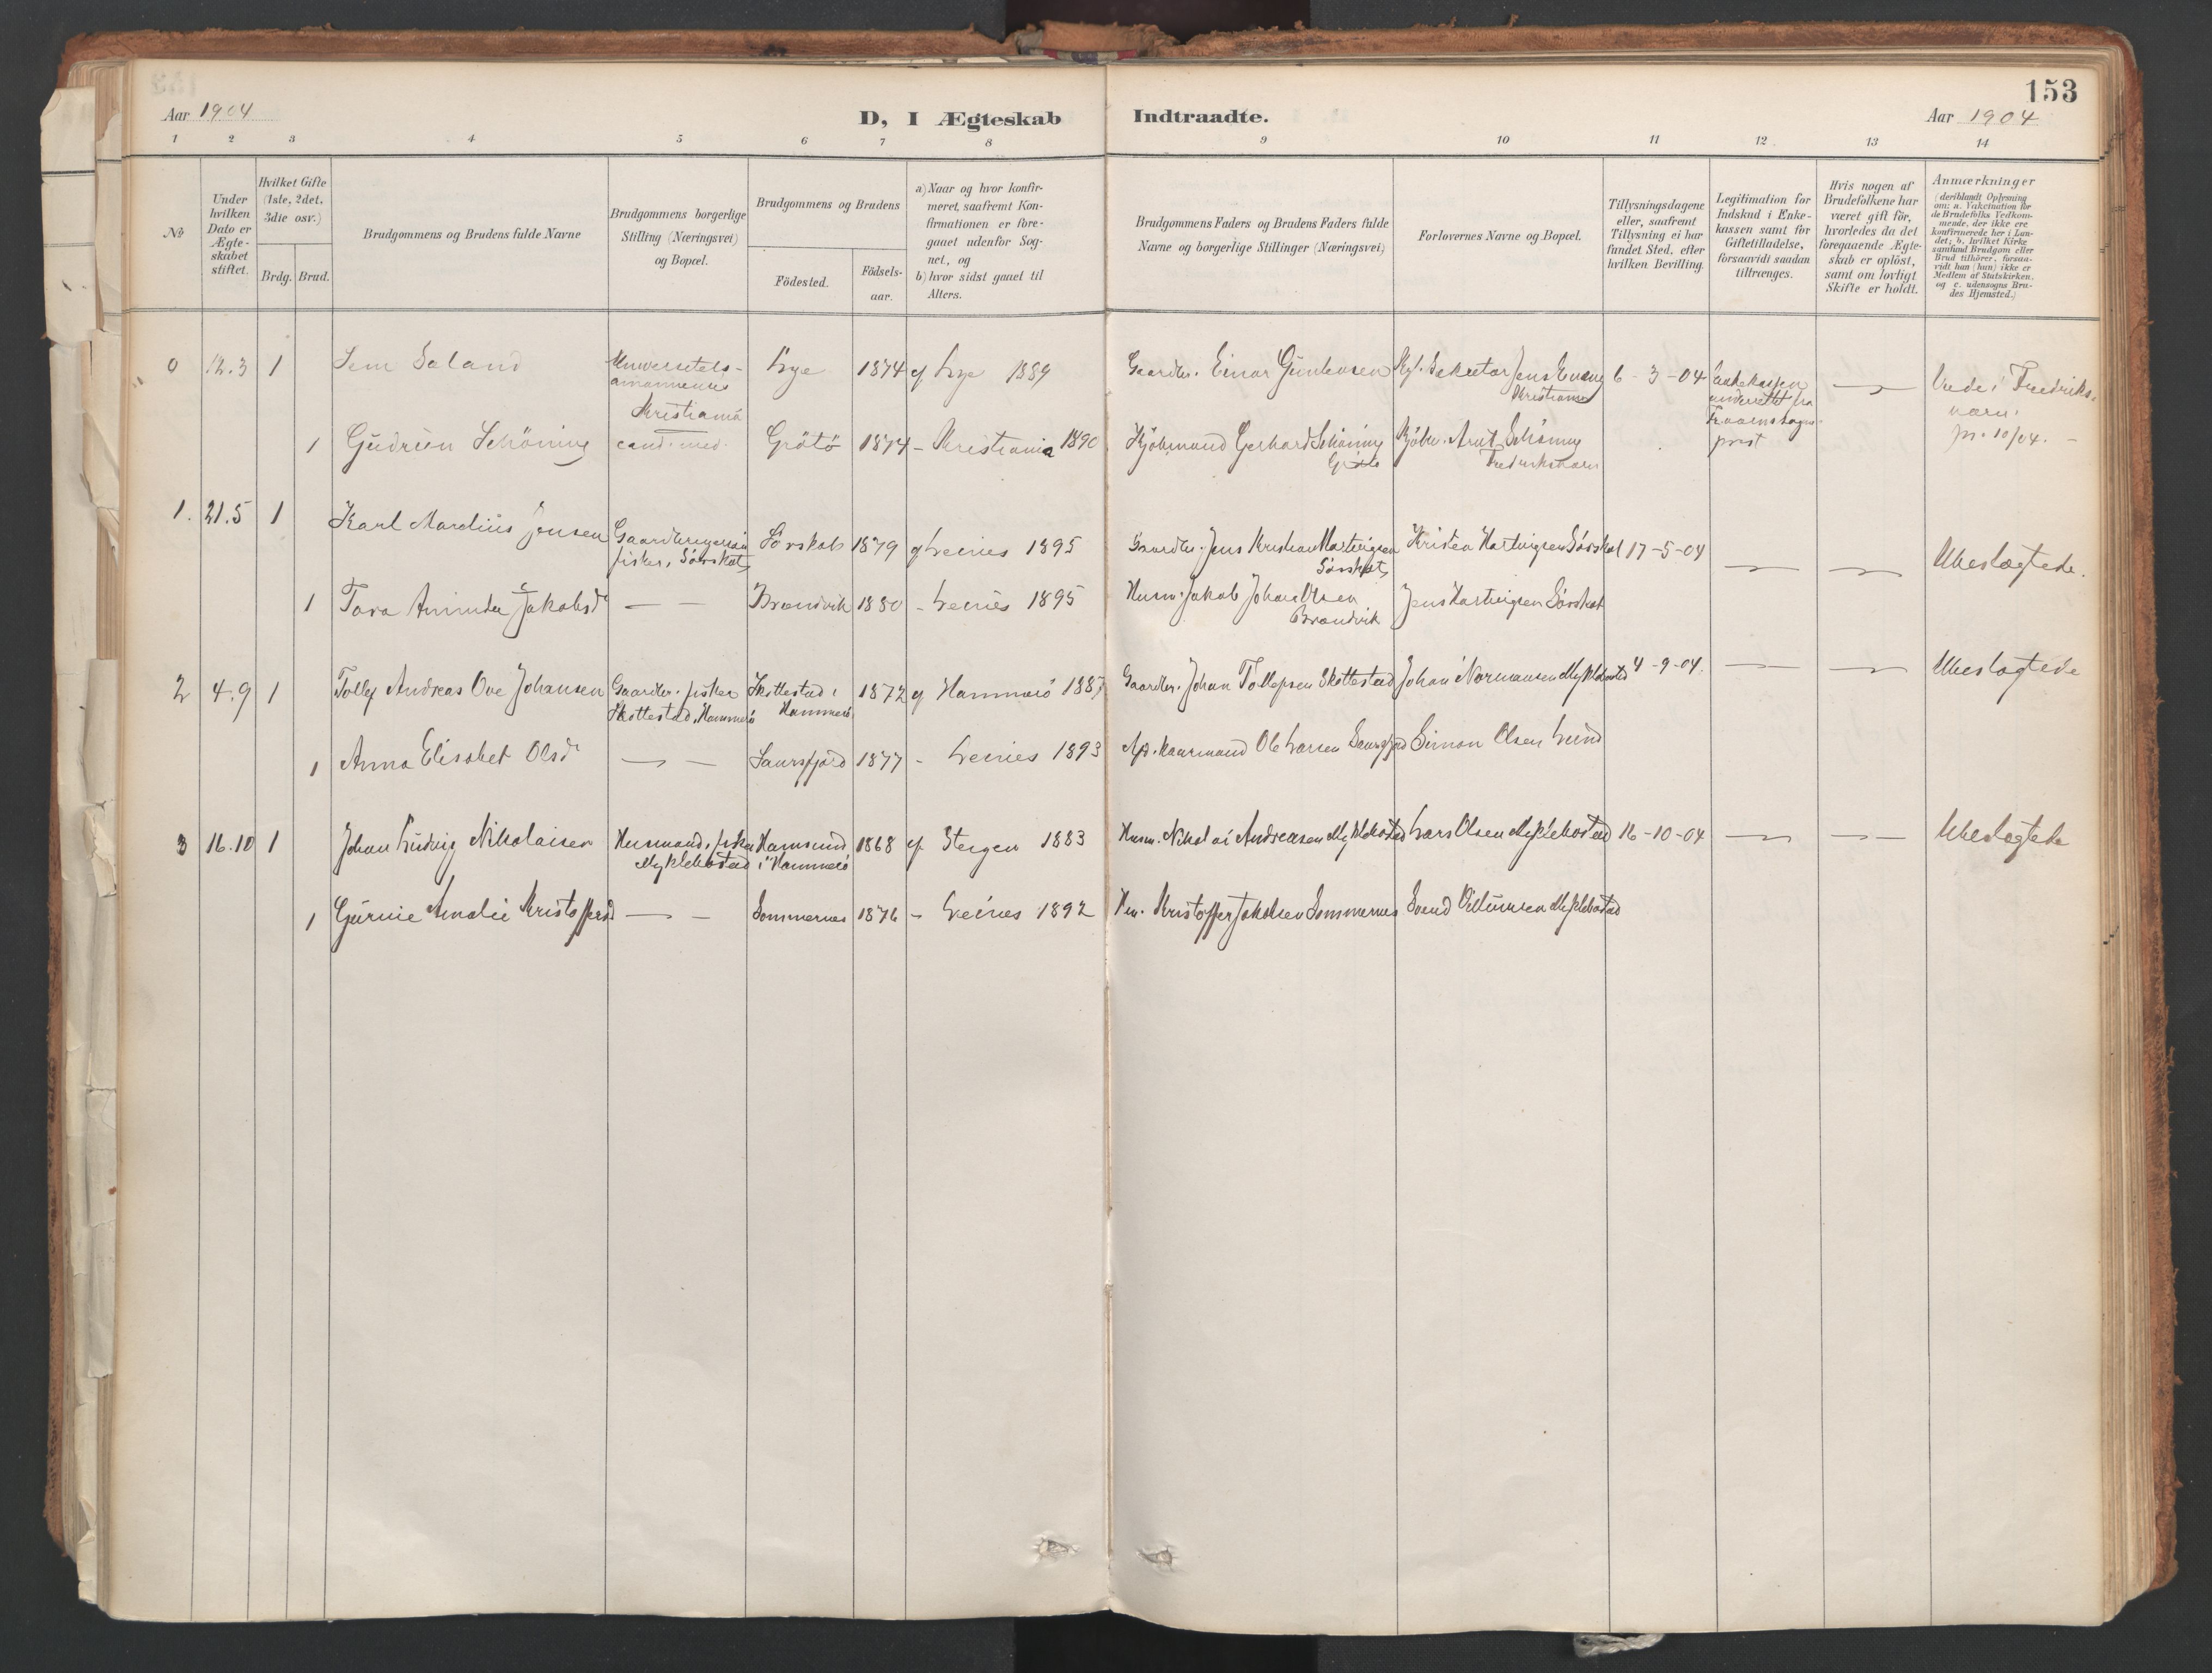 153
Aar 1904
D, I Ægteskab Indtraadte.
Aar 1904
1 2 3 4 5 6 7 8 9 10 11 12 13 14
No
Under hvilken Dato er Ægteskabet stiftet.
Hvilket Gifte (1ste, 2det, 3die osv.)
Brdg. Brud.
Brudgommens og Brudens fulde Navne
Brudgommens borgerlige Stilling (Næringsvei) og Bopæl.
Brudgommens og Brudens
Födested.
Födsels-aar.
a) Naar og hvor konfir-
meret, saafremt Kon-
firmationen er fore-
gaaet udenfor Sog-
net, og
b) hvor sidst gaaet til
Alters.
Brudgommens Faders og Brudens Faders fulde
Navne og borgerlige Stillinger (Næringsvei)
Forlovernes Navne og Bopæl.
Tillysningsdagene
eller, saafremt
Tillysning ei har
fundet Sted, efter
hvilken Bevilling.
Legitimation for
Indskud i Enke-
kassen samt for
Giftetilladelse,
forsaavidt saadan
tiltrænges.
Hvis nogen af
Brudefolkene har
været gift før,
hvorledes da det
foregaaende Ægte-
skab er opløst,
samt om lovligt
Skifte er holdt.
Anmærkninger
(deriblandt Oplysning
om: a. Vakcination for
de Brudefolks Vedkom-
mende, der ikke ere
konfirmerede her i Lan-
det; b. hvilket Kirke
samfund Brudgom eller
Brud tilhører, forsaa-
vidt han (hun) ikke er
Medlem af Statskirken,
og c. udensogns Bru-
des Hjemsted.)
0 12.3 1 Sem Sæland Universitets- Kristiania Lye 1874 Lye 1889 Gaardbr. Einar Kgl. Sekretær Jens Kristiania 6-3-04 Enkekassen Viede i Fredriks-
værn.
pr. 10/04.
1 Gudrun Schöning cand. med. Grötö 1874 - Kristiania 1890 Kjöbmand Gerhard Schöning Grötö Kjöbm. Arnt Schöning Fredriksværn prest
1. 21.5 1 Karl Mardius Jensen fisker, Sörskot Sörskot 1879 Leines 1895 Gaardbr. Jens Kristian Hartvigsen Sörskot Kristen Hartvigsen Sörskot 17-5-04 Ubeslægtede.
1 Tora Aminda Jakobsd Brandvik 1880 - Leines 1895 Husm. Jakob Johan Olsen Brandvik Jens Hartvigsen Sörskot
2 4.9 1 Tollef Andreas Ove Johansen Gaardbr. fisker Skottestad, Hammerö Skottestad i Hammerö 1872 Hammerö 1887 Gaardbr. Johan Tollefsen Skottestad Johan Normansen Myklebostad 4-9-04. Ubeslægtede
1 Anna Elisabet Olsd Laursfjord 1877 - Leines 1893 Ole Larsen Simon Olsen Lund
3 16.10 1 Johan Ludvig Nikolaisen Husmand, fisker Myklebostad Hamsund i Hammerö 1868 Steigen 1883 Husm. Nikolai Andreasen Myklebostad Lars Olsen Myklebostad 16-10-04 Ubeslægtede
1 Gurine Amalie Kristoffersd Sommernes 1876 - Leines 1892 Kristoffer Jakobsen Sommernes Svend Myklebostad